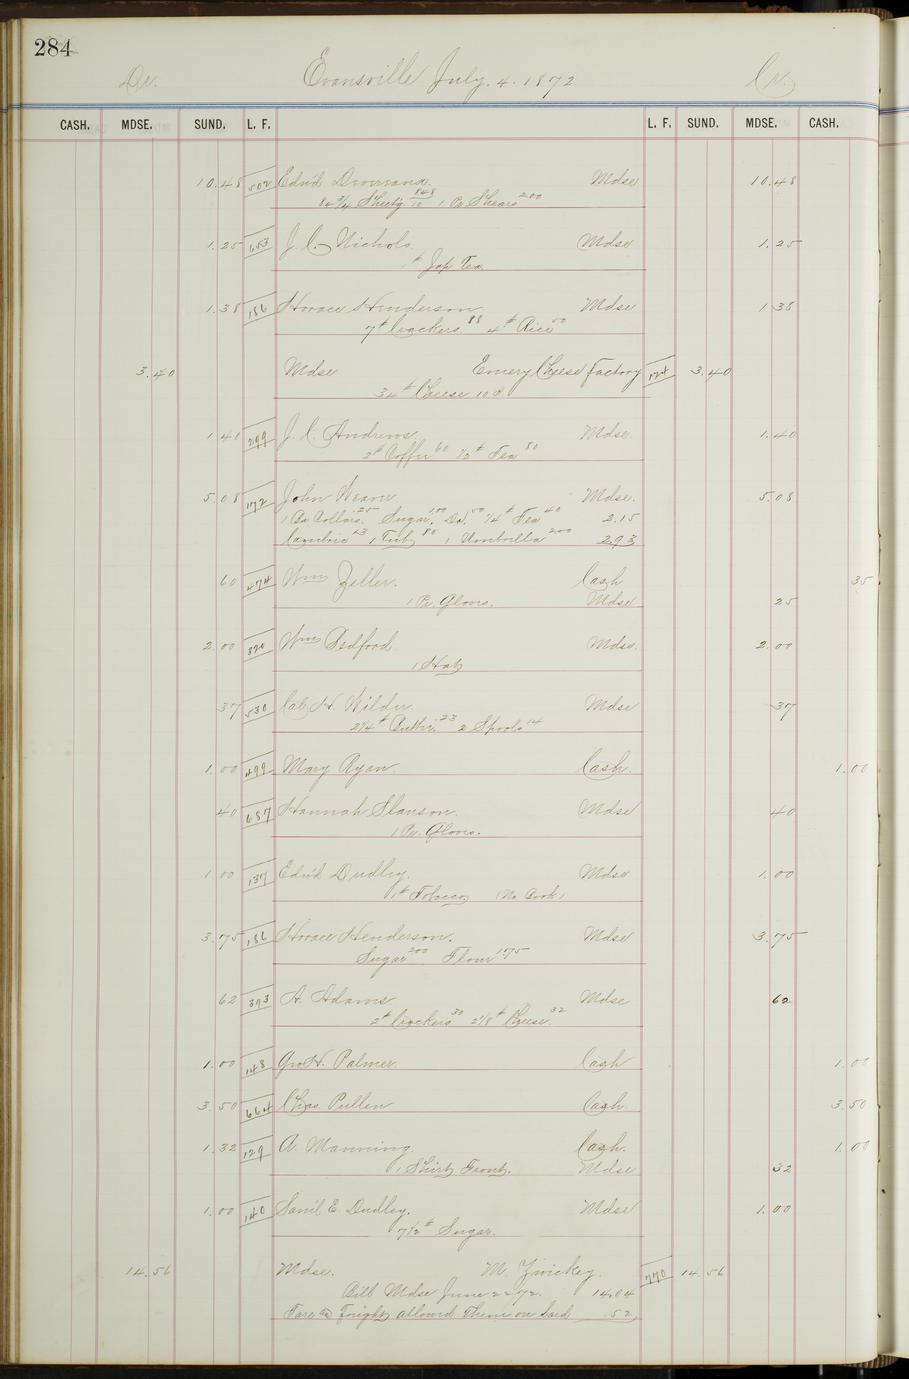 284
Dr. Evansville July. 4. 1872 Cr.
CASH. MDSE. SUND. L. F. L. F. SUND. MDSE. CASH.
10.48 502 Edw'd Mdse 10.48
84 3/4 Sheet'g 848/10 1 Pr Shears 200
1.25 653 J. C. Nichols Mdse 1.25
1# Jap Tea.
1.38 186 Horace Henderson Mdse 1 38
7# Crackers 88 4# Rice 50
3.40 Mdse Emery Cheese Factory 124 3.40
34# Cheese 10¢
1 40 299 J. C. Andrews Mdse. 1.40
2# Coffee 60 1/2# Tea 80
5.08 172 John Weaver Mdse. 5.08
1 Bx Collars .25 Sugar. 100 Do. 50 1/4# Tea 40 2.15
Cambric 13 1 Tub 80 1 Umbrella 200 2.93
60 474 Wm Zeller. Cash 35
1 Pr. Gloves. Mdse 25
2 00 320 Wm Bedford Mdse. 2.00
1 Hat
37 530 Cal H. Wilder Mdse 37
2 1/4# Butter .23 2 Spools 14
1.00 499 Mary Ryan. Cash. 1.00
40 687 Hannah Slauson. Mdse 40
1 Pr. Gloves.
1.00 137 Edw'd Dudley. Mdse 1.00
1# Tobacco (No Book)
3.75 186 Horace Henderson. Mdse 3.75
Sugar 200 Flour 175
62 393 A. Adams Mdse 62
2# Crackers 30 2 1/8# Cheese. 32
1.00 143 Geo H. Palmer. Cash 1.00
3.50 664 Chas. Pullen Cash 3.50
1.32 129 A. Manning. Cash. 1.00
1 Shirt Front. Mdse 32
1.00 140 Sam'l E. Dudley. Mdse 1.00
7 1/2# Sugar.
14.56 Mdse. M. Zwickey. 770 14.56
Bill Mdse June 22 72. 14.04
Tare & Freight allowed them on Lard .52